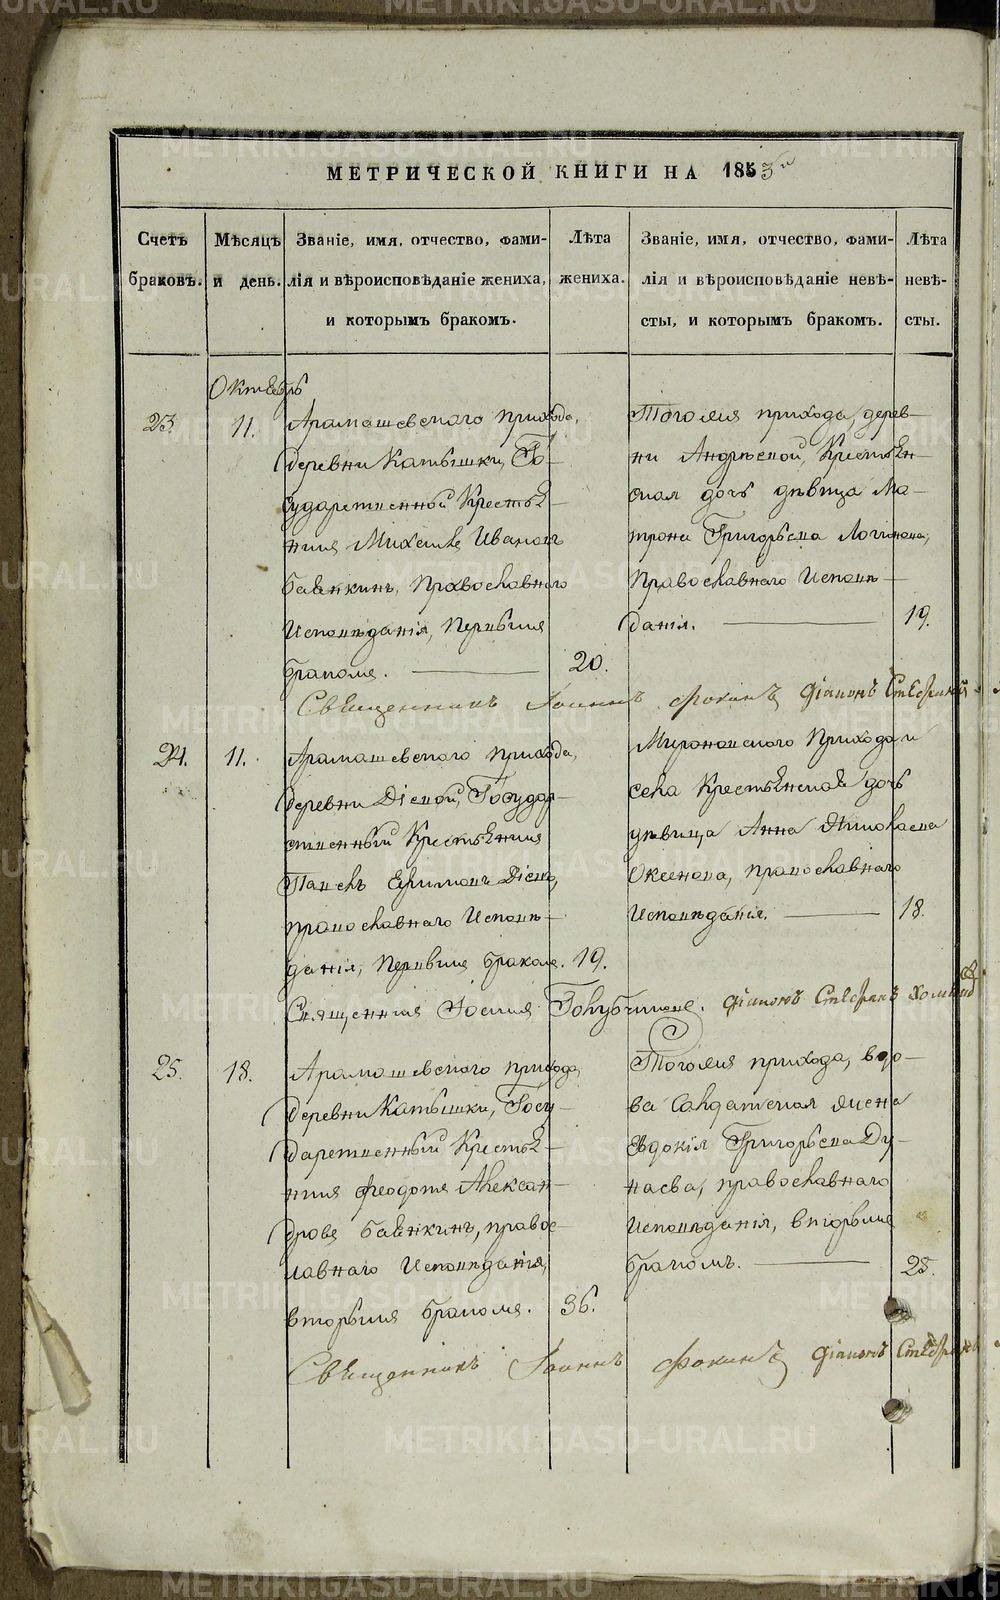 МЕТРИЧЕСКОЙ КНИГИ НА 1853й
Счетъ браковъ.
Мѣсяцъ и день.
Званіе, имя, отчество, фами-
лія и вѣроисповѣданіе жениха,
и которымъ бракомъ.
Лѣта жениха.
Званіе, имя, отчество, фами-
лія и вѣроисповѣданіе невѣ-
сты, и которымъ бракомъ.
Лѣта невѣ-
сты.
Октябрь
23.
11.
Арамашевскаго прихода,
деревни Катышки, Го-
сударственной Крестья-
нинъ Михаилъ Ивановъ
Бачинкинъ, Православнаго
Исповѣданія, Первымъ
бракомъ.
20.
Тогожъ прихода, дерев-
ни Андрѣевой, Крестьян-
ская дочь дѣвица Ма-
трона Григорьева Логинова,
Православнаго Исповѣ-
данія.
19.
Священникъ Іоаннъ Фокинъ Діаконъ Стефанъ
24.
11.
Арамашевскаго прихода,
деревни Діевой, Государ-
ственный Крестьянинъ
Павелъ Ефимовъ Діевъ,
православнаго Исповѣ-
данія, Первымъ бракомъ.
19.
Мироновскаго Прихода и
села Крестьянская дочь
дѣвица Анна Николаева
Оксенова, православнаго
Исповѣданія.
18.
Священникъ Іосифъ Голубчиковъ. Діаконъ Стефанъ
25.
18.
Арамашевскаго прихода
деревни Катышки, Госу-
дарственный Крестья-
нинъ Феодотъ Алексан-
дровъ Бачинкинъ, правос-
лавнаго Исповѣданія,
вторымъ бракомъ.
36.
Тогожъ прихода, вдо-
ва Салдатская жена
Евдокія Григорьева Ду-
наева, православнаго
Исповѣданія, вторымъ
бракомъ.
28.
Священникъ Іоаннъ Фокинъ Діаконъ Стефанъ